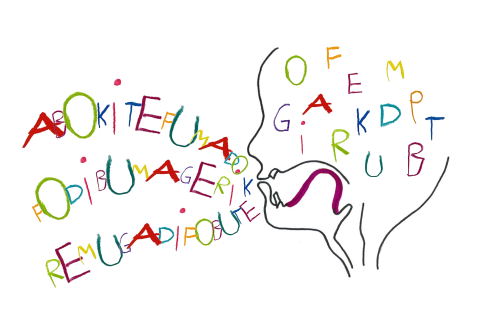 ABOKiTEFUMADO
PODiBUMAGERiK
REMUGADiPOBUTE
O F E M
G A K D P T
i R U B